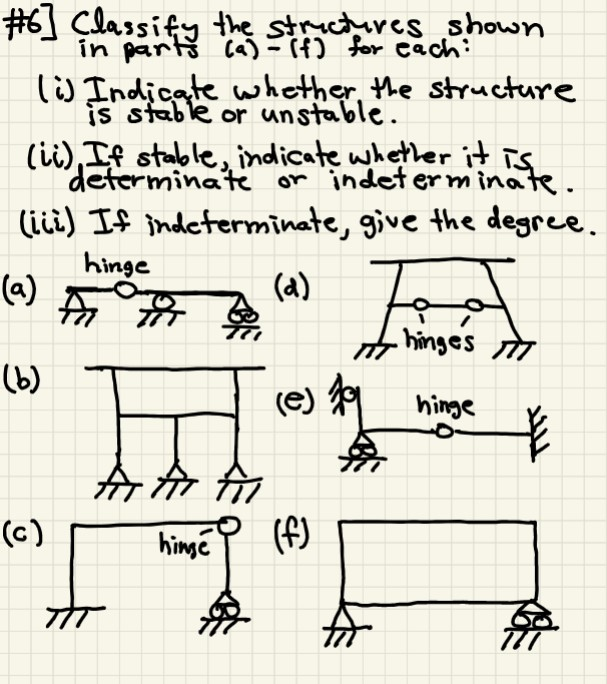 #6] Classify the structures shown
in parts (a)-(f) for each:
(i) Indicate whether the structure
is stable or unstable.
(ii) If stable, indicate whether it is
determinate or indeterminate.
(iii) If indeterminate, give the degree.
hinge
(a)
(d)
hinges
(b)
(e)
hinge
(c)
hinge
(f)